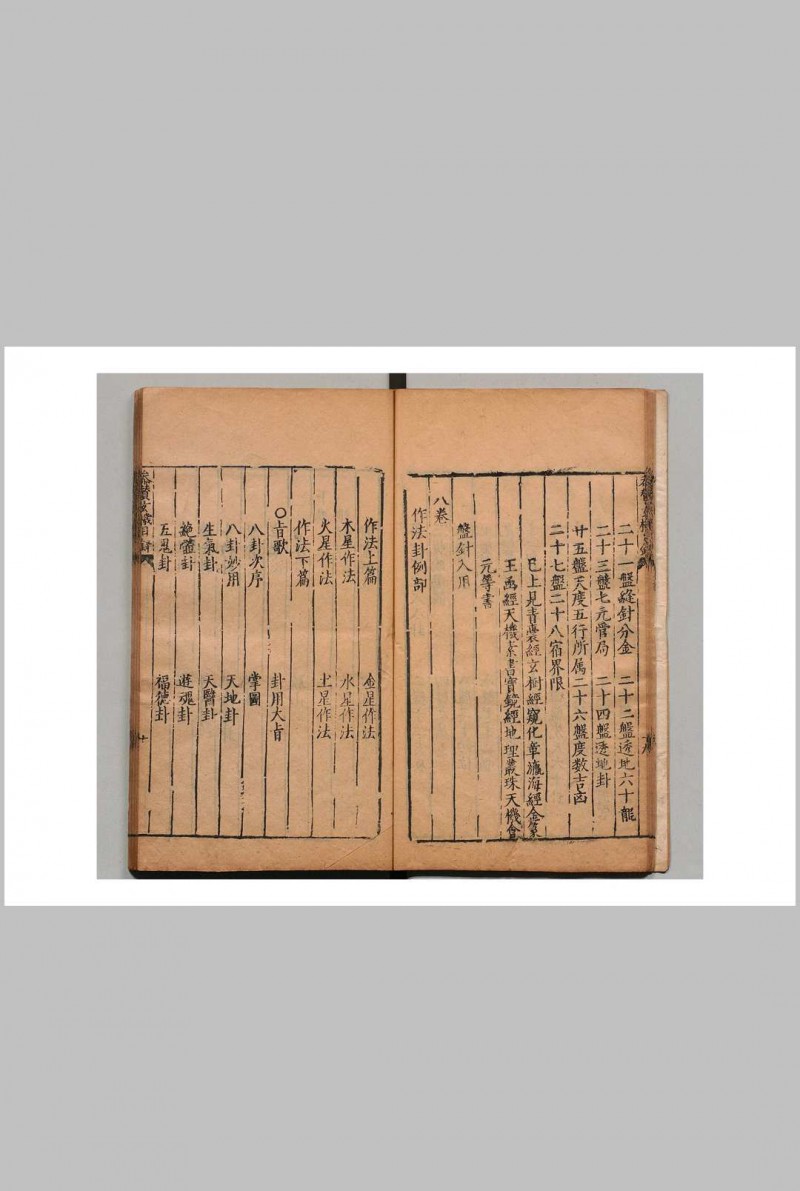 二十一盤縫針分金 二十二盤透地六十龍
二十三盤七元管局 二十四盤透地卦
廿五盤天度五行所属二十六盤度数吉凶
二十七盤二十八宿界限
已上見青囊經玄樞經窺化章瀛海經金篆
玉函經天機素書寶鏡經地理叢珠天機會
元等書
盤針入用
八卷
作法卦例部
作法上篇 金星作法
木星作法 水星作法
火星作法 土星作法
作法下篇
〇首歌 卦用大旨
八卦次序 掌圖
八卦妙用 天地卦
生氣卦 天醫卦
絶體卦 遊魂卦
五鬼卦 福德卦